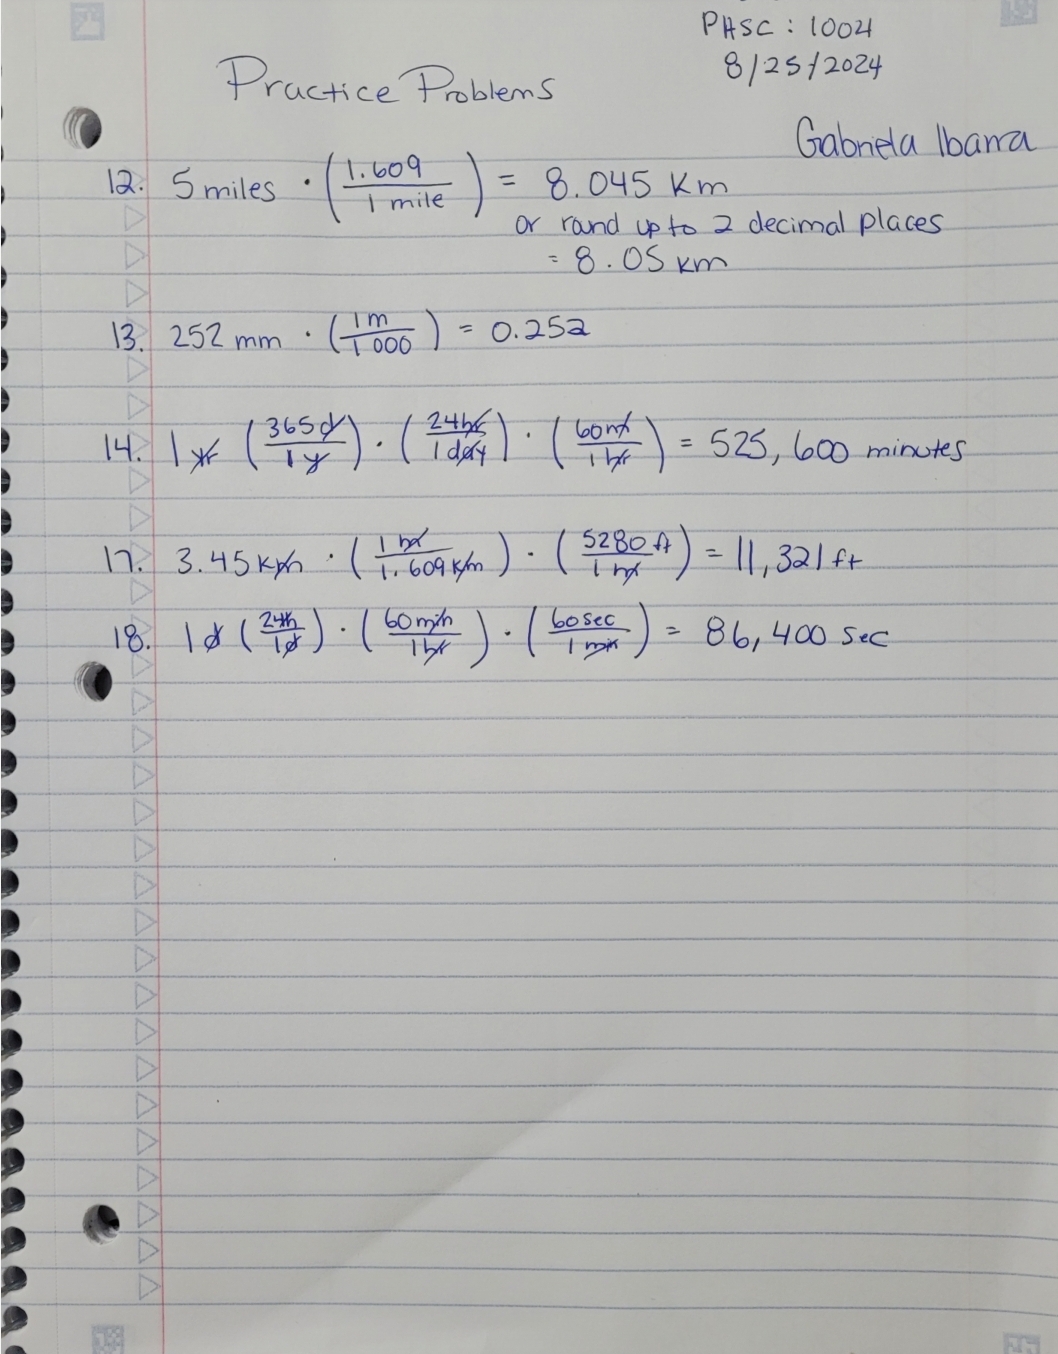 PHSC: 1004
8/25/2024
Practice Problems
Gabriela Ibarra
12. 5 miles · (1.609 / 1 mile) = 8.045 Km
or round up to 2 decimal places
= 8.05 km
13. 252 mm · (1m / 1000) = 0.252
14. 1 yr (365d / 1y) · (24hr / 1day) · (60m / 1hr) = 525,600 minutes
17. 3.45 km · (1 mi / 1.609 km) · (5280 ft / 1 mi) = 11,321 ft
18. 1d (24h / 1d) · (60min / 1hr) · (60sec / 1 min) = 86,400 sec